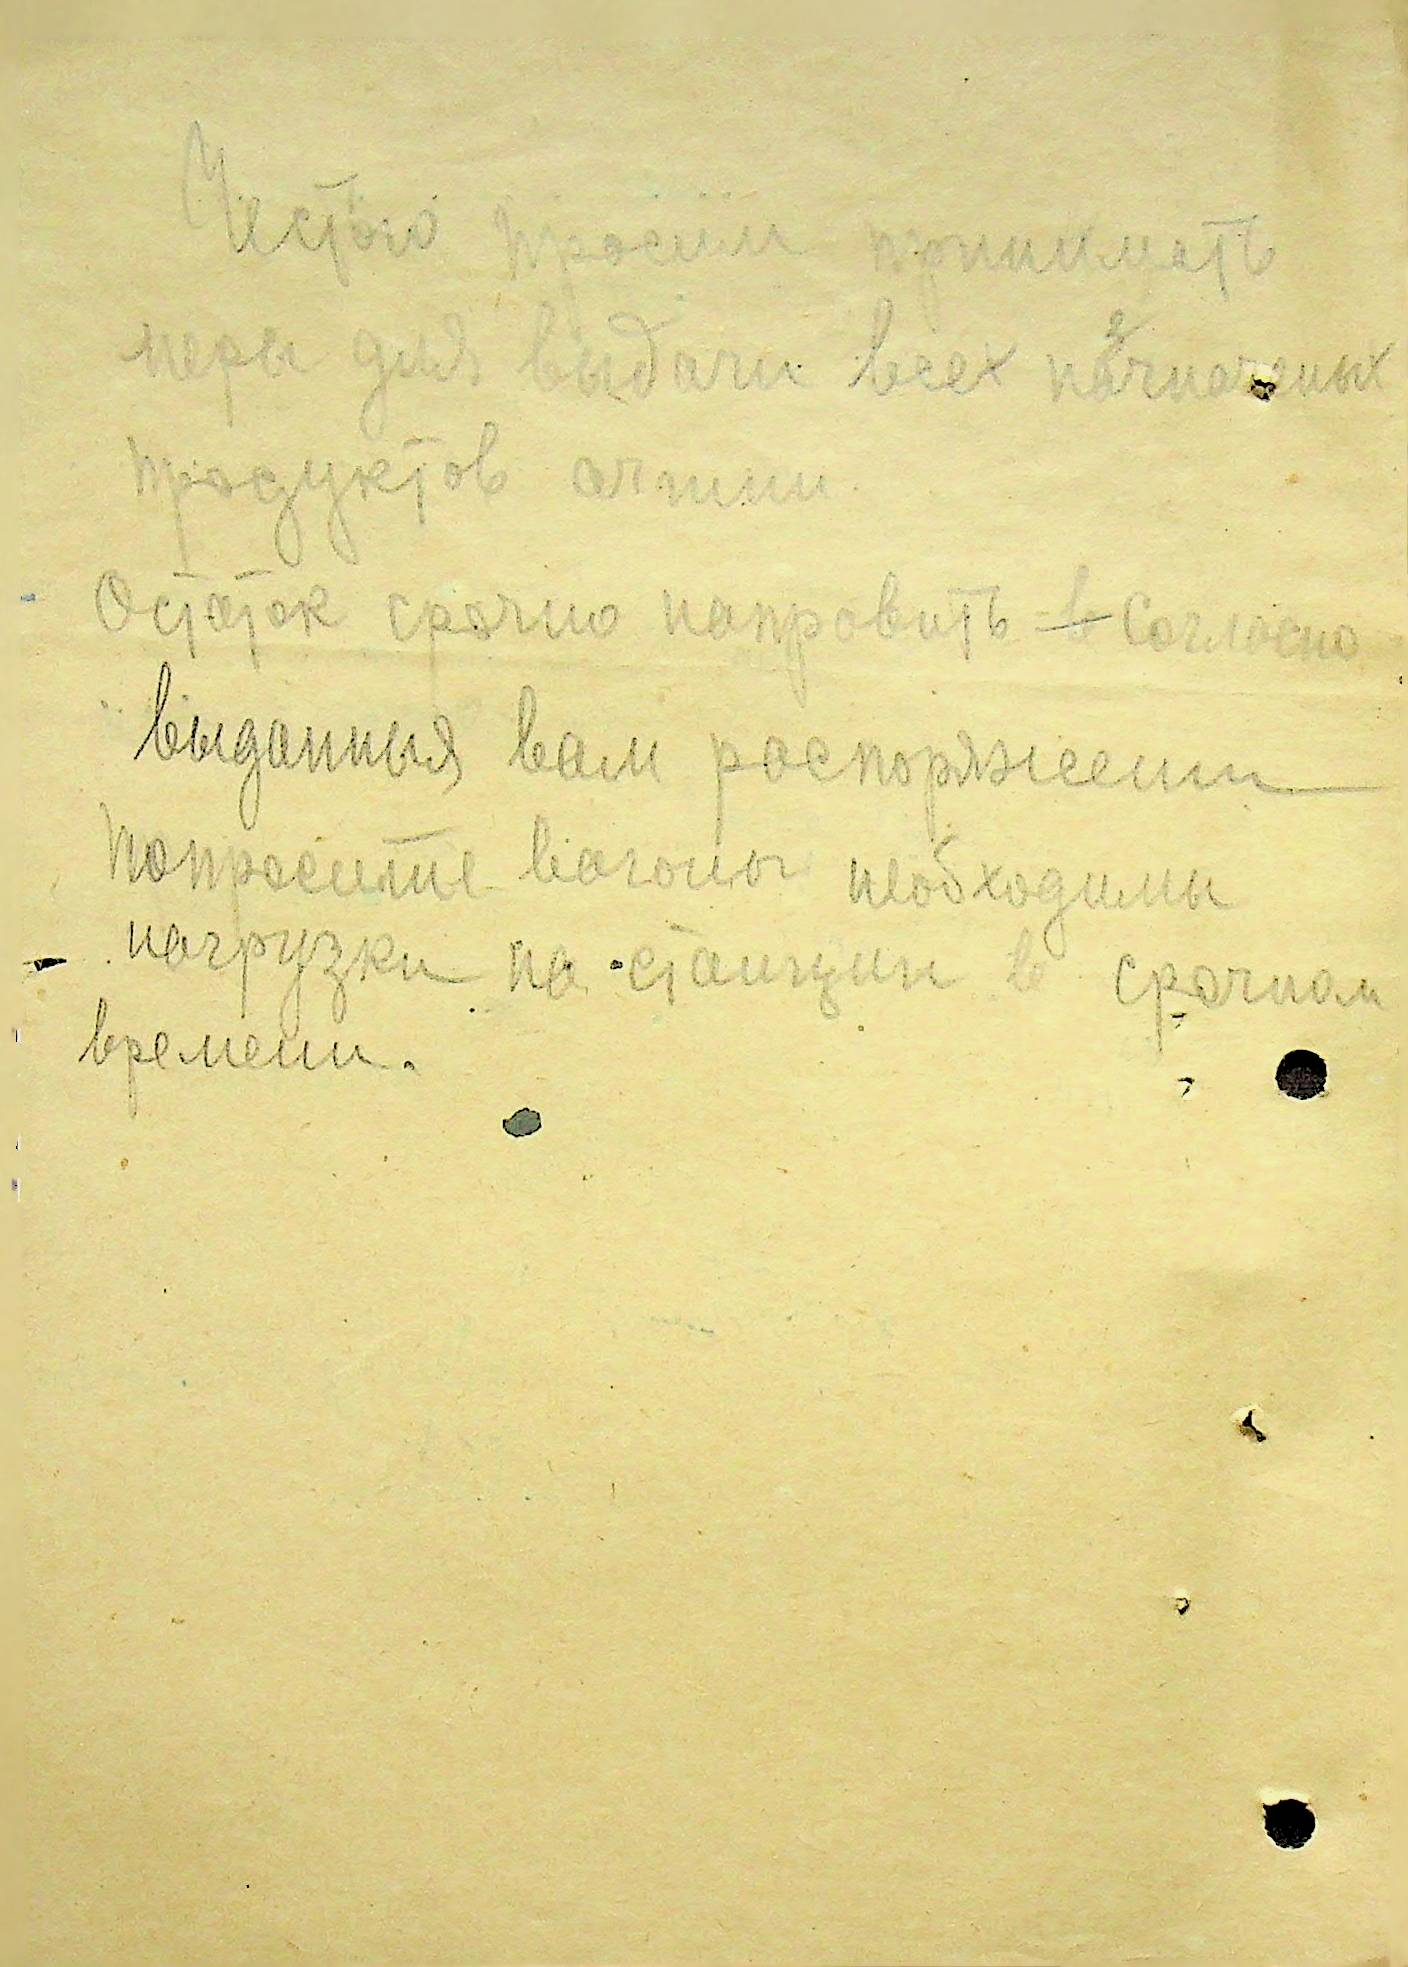 просим принимать
меры для выдачи всех
продуктов
Остаток срочно направить в согласно
выданныя вам распоряжении
Попросите вагоны необходимы
нагрузки на станции в срочном
времени.